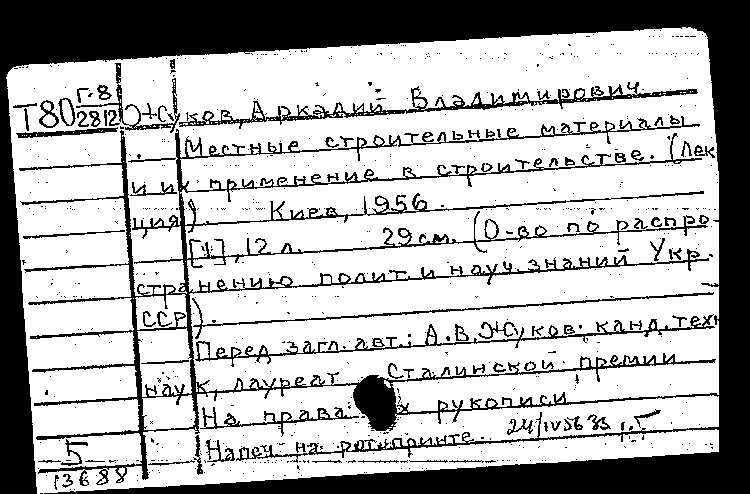 Г-8
Т80 2812 Жуков, Аркадий Владимирович
Местные строительные материалы
и их применение в строительстве. (Лек
ция). Киев, 1956.
[1], 12 л. 29 см. (О-во по распро-
странению полит. и науч. знаний Укр.
ССР).
Перед загл. авт.: А.В. Жуков. канд. техн
наук, лауреат Сталинской премии
На правах рукописи
Напеч на ротапринте.
5
13688